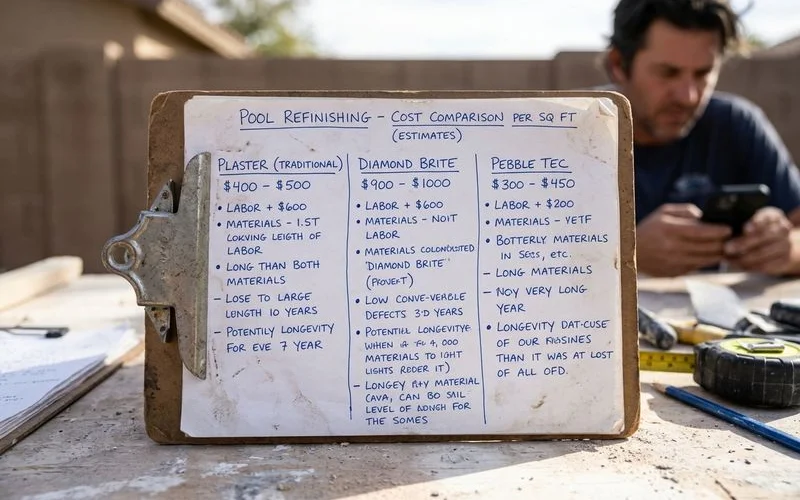 POOL REFINISHING – COST COMPARISON PER SQ FT
(ESTIMATES)
PLASTER (TRADITIONAL)
$400 – $500
• LABOR + $600
• MATERIALS – 1.5T
LOKVING LEIGTH OF
LABOR
• LONG THAN BOTH
MATERIALS
– LOSE TO LARGE
LENGTH 10 YEARS
– POTENTLY LONGEVITY
FOR EVE 7 YEAR
DIAMOND BRITE
$900 – $1000
• LABOR + $600
• MATERIALS – NOIT
LABOR
• MATERIALS
'DIAMOND BRITE'
• LOW CONVE-VERABLE
DEFECTS 3-D YEARS
• POTENTIAL LONGEVITY
WHEN 4,000
MATERIALS TO IGHT
LIGHTS RODER IT)
– LONGEY MATERIAL
CAVA, CAN BO SAIL
LEVEL OF FOR
THE SOMES
PEBBLE TEC
$300 – $450
• LABOR + $200
• MATERIALS – VETF
• BOTTERLY MATERIALS
IN ETC.
– LONG MATERIALS
– NOY VERY LONG
YEAR
• LONGEVITY DAT-CUSE
OF OUR
THAN IT WAS AT LOST
OF ALL OFD.